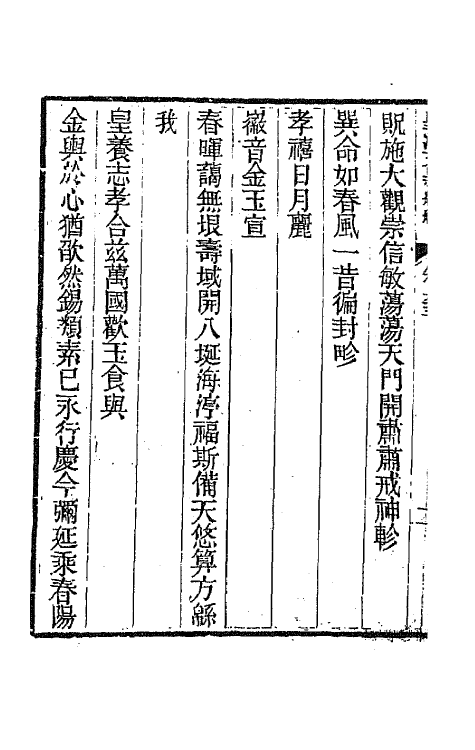 貺施大觀崇信敏蕩蕩天門開肅肅戒神軫
巽命如春風一昔徧封畛
孝禧日月麗
徽音金玉宣
春暉藹無垠壽域開八埏海渟福斯備天悠算方緜
我
皇養志孝合茲萬國歡玉食與
金輿於心猶欿然錫類素已永行慶今彌延乘春陽